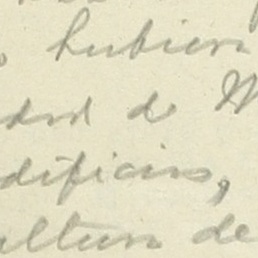 hubiera
dad de M
dificios,
altura de